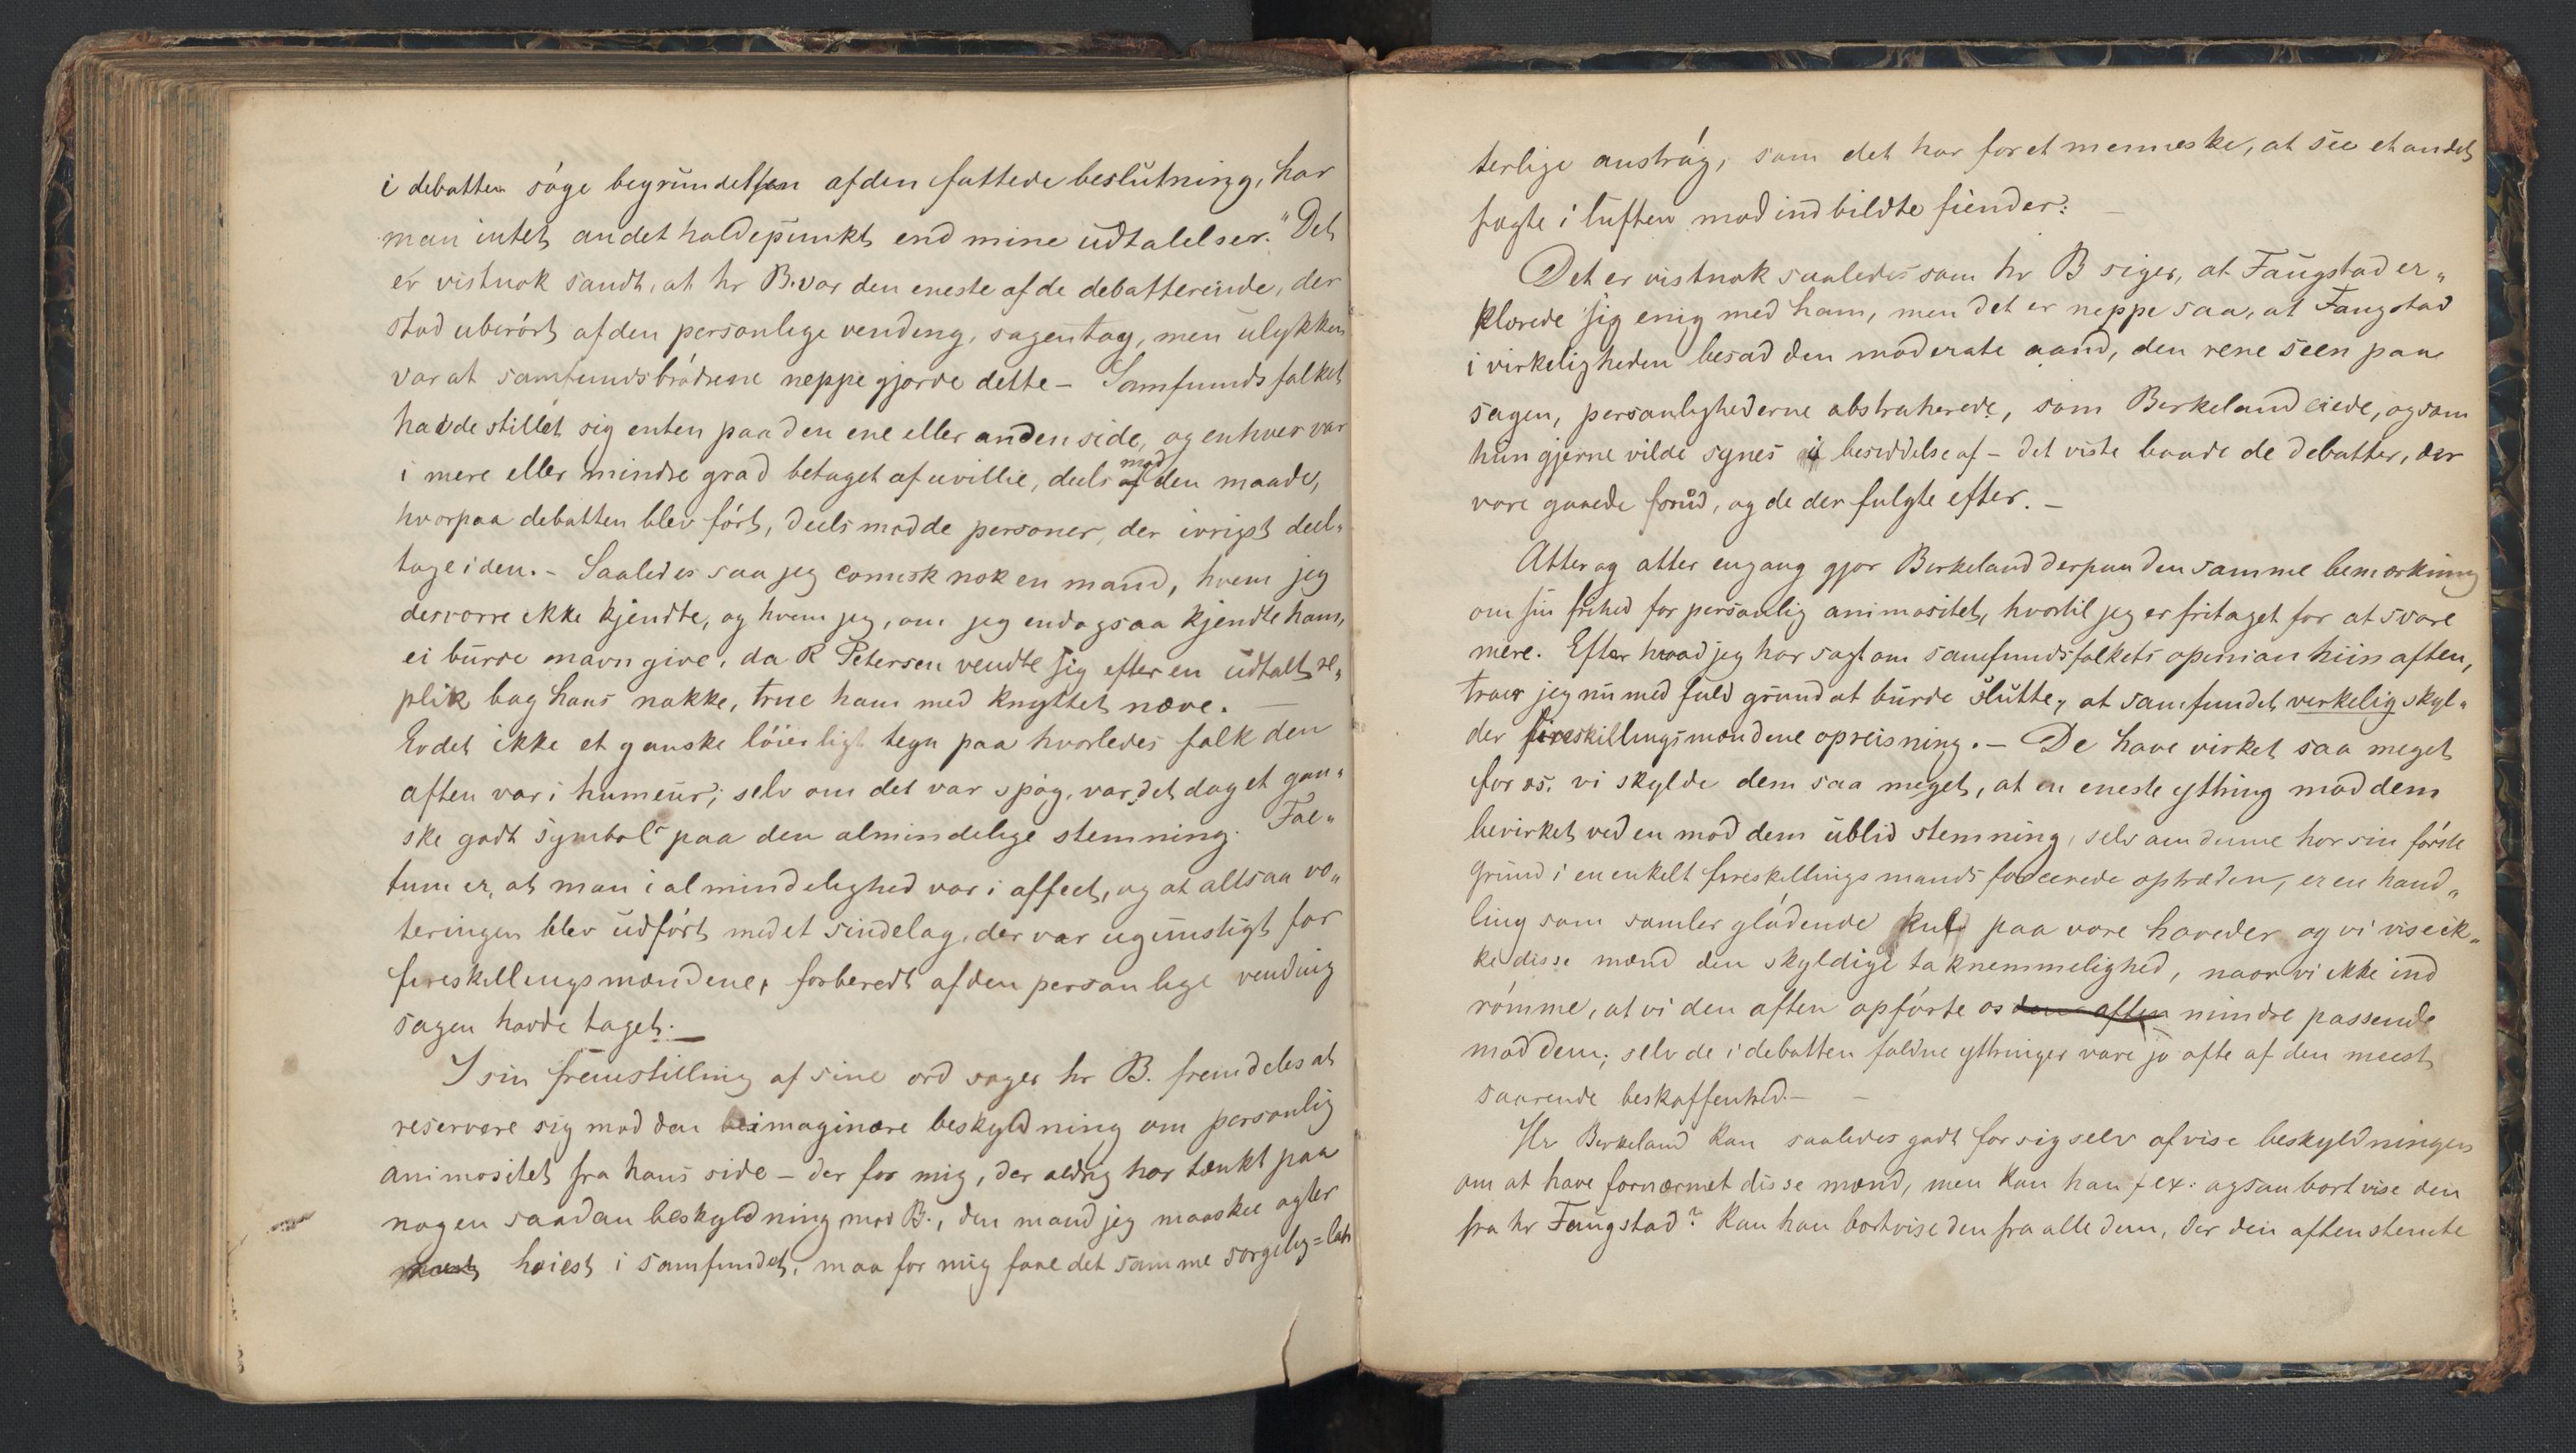 i debatten söge begrundelsen af den fattede beslutning, har
man intet andet holdepunkt end mine udtalelser." Det
er vistnok sandt, at hr B. var den eneste af de debatterende, der
stod uberört af den personlige vending, sagen tog, men ulykken
var at samfundsbrödrene neppe gjorde dette – Samfundsfolket
havde stillet sig enten paa den ene eller anden side, og enhver var
i mere eller mindre grad betaget af uvillie, deels mod den maade,
hvorpaa debatten blev fört, deels mod de personer, der ivrigst deel„
toge i den. – Saaledes saa jeg comisk nok en mand, hvem jeg
desværre ikke kjendte, og hvem jeg, om jeg endogsaa kjendte ham,
ei burde navngive, da R Petersen vendte sig efter en udtalt re„
plik bag hans nakke, true ham med knyttet næve. —
Er det ikke et ganske löierligt tegn paa hvorledes folk den
aften var i humeur; selv om det var spög, var det dog et gan„
ske godt symbol paa den almindelige stemning. Fac„
tum er, at man i almindelighed var i affect, og at altsaa vo„
teringen blev udfört med et sindelag, der var ugunstigt for
fireskillingsmændene, forberedt af den personlige vending
sagen havde taget. —
I sin fremstilling af sine ord søger hr B. fremdeles at
reservere sig mod den imaginære beskyldning om personlig
animositet fra hans side – der for mig, der aldrig har tænkt paa
nogen saadan beskyldning mod B., den mand jeg maaskee agter
høiest i samfundet, maa for mig faae det samme sorgelig=lat
terlige anströg, som det har for et menneske, at see et andet
fægte i luften mod indbildte fiender. —
Det er vistnok saaledes som hr B siger, at Faugstad er„
klærede sig enig med ham, men det er neppe saa, at Faugstad
i virkeligheden besad den moderate aand, den rene seen paa
sagen, personlighederne abstraherede, som Birkeland eiede, og som
hun gjerne vilde synes i besiddelse af – det viste baade de debatter, der
vare gaaede forud, og de der fulgte efter. –
Atter og atter engang gjør Birkeland derpaa den samme bemærkning
om sin frihed for personlig animositet, hvortil jeg er fritaget for at svare
mere. Efter hvad jeg har sagt om samfundsfolkets opinion hiin aften,
troer jeg nu med fuld grund at burde slutte, at samfundet virkelig skyl„
der fireskillingsmændene opreisning. – De have virket saa meget
for os, vi skylde dem saa meget, at en eneste ytring mod dem
bevirket ved en mod dem ublid stemning, selv om denne har sin förste
grund i en enkelt fireskillingsmands forcerede optræden, er en hand„
ling som samler glödende kul paa vore hoveder og vi vise ik„
ke disse mænd den skyldige taknemmelighed, naar vi ikke ind
römme, at vi den aften opförte os den aften mindre passende
mod dem; selv de i debatten faldne ytringer vare jo ofte af den meest
saarende beskaffenhed. –
Hr Birkeland kan saaledes godt for sig selv afvise beskyldningen
om at have fornærmet disse mænd, men kan han f ex: ogsaa bortvise den
fra hr Faugstad? Kan han bortvise den fra alle dem, der den aften stemte